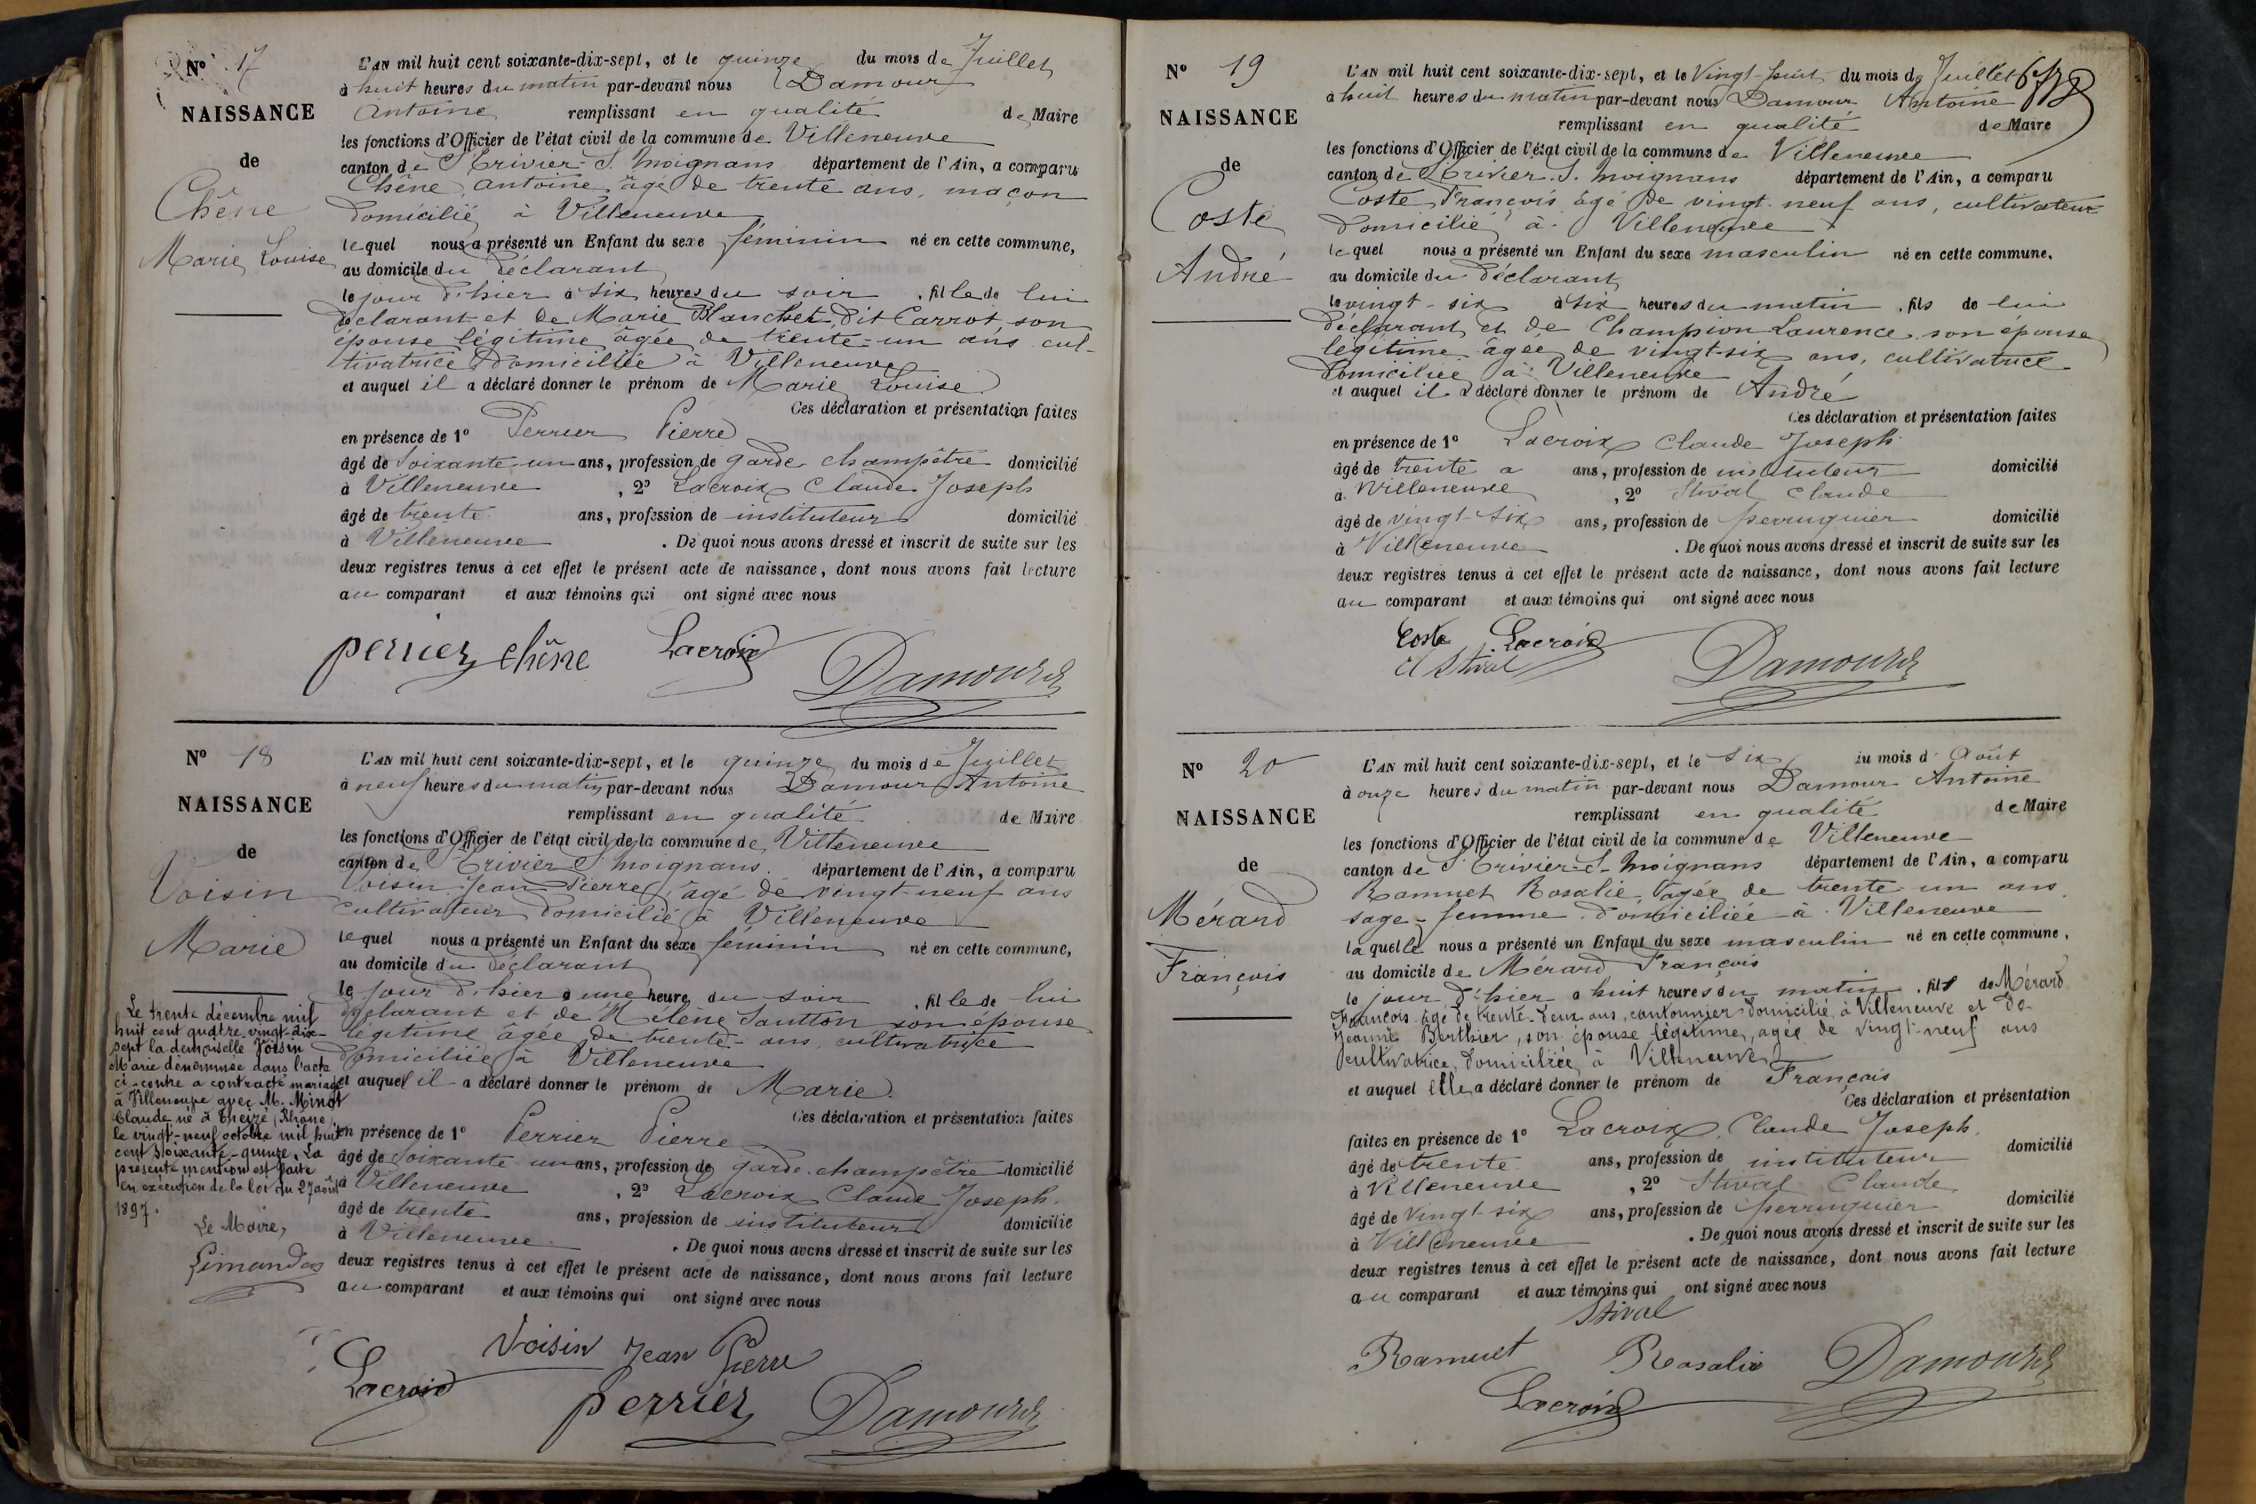 Nº 17
NAISSANCE
de
Chêne
Marie Louise
L'AN mil huit cent soixante-dix-sept, et le quinze du mois de Juillet
à huit heures du matin par-devant nous Damour
Antoine remplissant en qualité de Maire
les fonctions d'Officier de l'état civil de la commune de Villeneuve
canton de St Trivier S. Moignans département de l'Ain, a comparu
Chêne Antoine âgé de trente ans, maçon
domicilié à Villeneuve
lequel nous a présenté un Enfant du sexe féminin né en cette commune,
au domicile du déclarant
le jour d'hier à six heures du soir , fille de lui
déclarant et de Marie Planchet dit Carrot son
épouse légitime âgée de trente-un ans cul-
tivatrice domiciliée à Villeneuve
et auquel il a déclaré donner le prénom de Marie Louise
Ces déclaration et présentation faites
en présence de 1º Perrier Pierre
âgé de soixante-un ans, profession de garde champêtre domicilié
à Villeneuve , 2º Lacroix Claude Joseph
âgé de trente ans, profession de instituteur domicilié
à Villeneuve . De quoi nous avons dressé et inscrit de suite sur les
deux registres tenus à cet effet le présent acte de naissance, dont nous avons fait lecture
au comparant et aux témoins qui ont signé avec nous
perrier chêne Lacroix
Damour
Nº 18
NAISSANCE
de
Voisin
Marie
L'AN mil huit cent soixante-dix-sept, et le quinze du mois de Juillet
à neuf heures du matin par-devant nous Damour Antoine
remplissant en qualité de Maire
les fonctions d'Officier de l'état civil de la commune de Villeneuve
canton de St Trivier S. Moignans département de l'Ain, a comparu
Voisin Jean Pierre, âgé de vingt-neuf ans
cultivateur domicilié à Villeneuve
lequel nous a présenté un Enfant du sexe féminin né en cette commune,
au domicile du déclarant
le jour d'hier à une heure du soir , fille de lui
déclarant et de Hélène Sautton son épouse
légitime âgée de trente ans, cultivatrice
domiciliée à Villeneuve
et auquel il a déclaré donner le prénom de Marie
Ces déclaration et présentation faites
en présence de 1º Perrier Pierre
âgé de soixante un ans, profession de garde-champêtre domicilié
à Villeneuve , 2º Lacroix Claude Joseph
âgé de trente ans, profession de instituteur domicilié
à Villeneuve . De quoi nous avons dressé et inscrit de suite sur les
deux registres tenus à cet effet le présent acte de naissance, dont nous avons fait lecture
au comparant et aux témoins qui ont signé avec nous
Voisin Jean Pierre
Lacroix
perrier Damour
Le trente décembre mil
huit cent quatre-vingt-dix-
sept la demoiselle Voisin
Marie dénommée dans l'acte
ci-contre a contracté mariage
à Villeneuve avec M. Minot
Claude né à Theizé, Rhône,
le vingt-neuf octobre mil huit
cent soixante-quinze. La
présente mention est faite
en exécution de la loi du 27 août
1897.
Le Maire,
Nº 19
NAISSANCE
de
Coste
André
L'AN mil huit cent soixante-dix-sept, et le vingt-huit du mois de Juillet
à huit heures du matin par-devant nous Damour Antoine
remplissant en qualité de Maire
les fonctions d'Officier de l'état civil de la commune de Villeneuve
canton de St Trivier S. Moignans département de l'Ain, a comparu
Coste François âgé de vingt-neuf ans, cultivateur
domicilié à Villeneuve
lequel nous a présenté un Enfant du sexe masculin né en cette commune.
au domicile du déclarant
le vingt-six à six heures du matin , fils de lui
déclarant et de Champion Laurence son épouse
légitime âgée de vingt-six ans, cultivatrice
domiciliée à Villeneuve
et auquel il a déclaré donner le prénom de André
Ces déclaration et présentation faites
en présence de 1º Lacroix Claude Joseph
âgé de trente ans, profession de instituteur domicilié
à Villeneuve , 2º Stival Claude
âgé de vingt-six ans, profession de perruquier domicilié
à Villeneuve . De quoi nous avons dressé et inscrit de suite sur les
deux registres tenus à cet effet le présent acte de naissance, dont nous avons fait lecture
au comparant et aux témoins qui ont signé avec nous
Coste Lacroix
Cl Stival Damour
Nº 20
NAISSANCE
de
Mérard
François
L'AN mil huit cent soixante-dix-sept, et le six du mois d' Août
à onze heures du matin par-devant nous Damour Antoine
remplissant en qualité de Maire
les fonctions d'Officier de l'état civil de la commune de Villeneuve
canton de St Trivier S. Moignans département de l'Ain, a comparu
Ramuet Rosalie, âgée de trente un ans
sage-femme domiciliée à Villeneuve
laquelle nous a présenté un Enfant du sexe masculin né en cette commune,
au domicile de Mérard François
le jour d'hier à huit heures du matin , fils de Mérard
François âgé de trente-deux ans, cantonnier domicilié à Villeneuve et de
Jeanne Berthier, son épouse légitime, agée de vingt-neuf ans
cultivatrice domiciliée à Villeneuve
et auquel Elle a déclaré donner le prénom de François
Ces déclaration et présentation
faites en présence de 1º Lacroix Claude Joseph
âgé de trente ans, profession de instituteur domicilié
à Villeneuve , 2º Stival Claude
âgé de vingt six ans, profession de perruquier domicilié
à Villeneuve . De quoi nous avons dressé et inscrit de suite sur les
deux registres tenus à cet effet le présent acte de naissance, dont nous avons fait lecture
au comparant et aux témoins qui ont signé avec nous
Stival
Ramuet Rosalie Damour
Lacroix